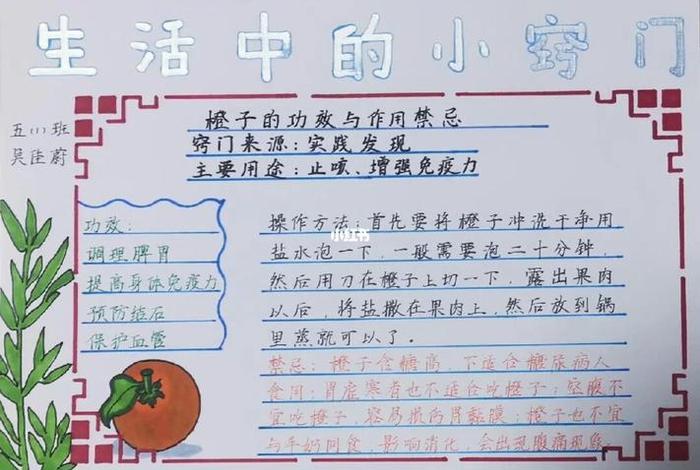 生活中的小窍门
五(1)班
吴佳蔚
橙子的功效与作用禁忌
窍门来源：实践发现
主要用途：止咳、增强免疫力
功效：
调理脾胃
提高身体免疫力
预防结石
保护血管
操作方法：首先要将橙子冲洗干净用
盐水泡一下，一般需要泡二十分钟，
然后用刀在橙子上切一下，露出果肉
以后，将盐撒在果肉上，然后放到锅
里蒸就可以了。
禁忌：橙子含糖高，不适合糖尿病人
食用；胃虚寒者也不适合吃橙子；空腹不
宜吃橙子，容易损伤胃黏膜；橙子也不宜
与牛奶同食，影响消化，会出现腹痛现象。
小红书